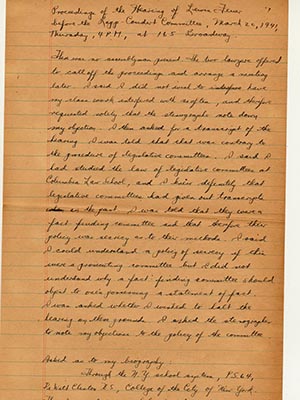 Proceedings of the Hearing of Lewis Feuer
before the Rapp-Coudert Committee, March 20, 1941,
Thursday, 4 P.M., at 165 Broadway.
There was no assemblyman present. The two lawyers offered
to call off the proceedings and arrange a meeting
later. I said I did not want to have
my class work interfered with so often, and therefore
requested solely that the stenographer note down
my objection. I then asked for a transcript of the
hearing. I was told that that was contrary to
the procedure of legislative committees. I said I
had studied the law of legislative committees at
Columbia Law School, and I knew definitely that
legislative committees had given out transcripts
in the past. I was told that they were a
fact finding committee and that therefore their
policy was secrecy as to their methods. I said
I could understand a policy of secrecy if this
were a prosecuting committee but I did not
understand why a fact finding committee should
object to one's possessing a statement of fact.
I was asked whether I wished to halt the
hearing on these grounds. I asked the stenographer
to note my objections to the policy of the committee.
Asked as to my biography:
Through the N.Y. school system, P.S. 64,
DeWitt Clinton H.S., College of the City of New York.